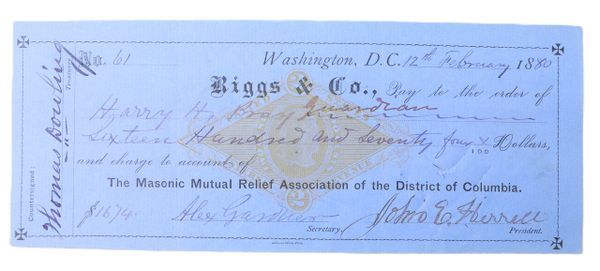 No. 61 Washington, D.C. 12th February 1880
Riggs & Co., Pay to the order of
Harry H. Bray Guardian
Sixteen Hundred and Seventy four x/100 Dollars,
and charge to account of
The Masonic Mutual Relief Association of the District of Columbia.
$1674. Alex Gardner John E. Herrell
Secretary, President.
Countersigned:
Thomas Dowling
Treasurer
2
2